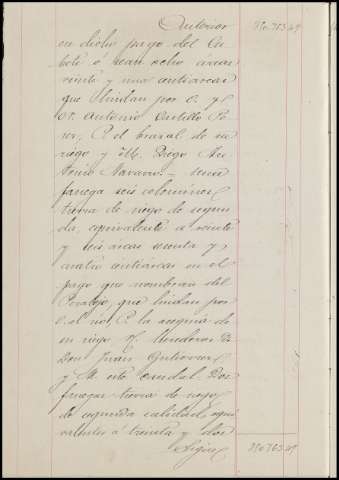 Anterior 210.763,49
en dicho pago del Cu
bete ó sean ocho areas
veinte y una centiareas
que lindan por S. y
Ot. Antonio Castillo Pe
rez, P. el brazal de su
riego y M. Diego An
tonio Navarro. = una
fanega seis celemines
tierra de riego de segun
da, equivalente a veinte
y seis areas sesenta y
cuatro centiareas en el
pago que nombran del
que lindan por
L. el rio, P. la acequia de
su riego, N. Herederos de
Don Juan Gutierrez
y M. este caudal. Dos
fanegas tierra de riego
de segunda calidad equi
valentes á treinta y dos
Sigue 210.763,49